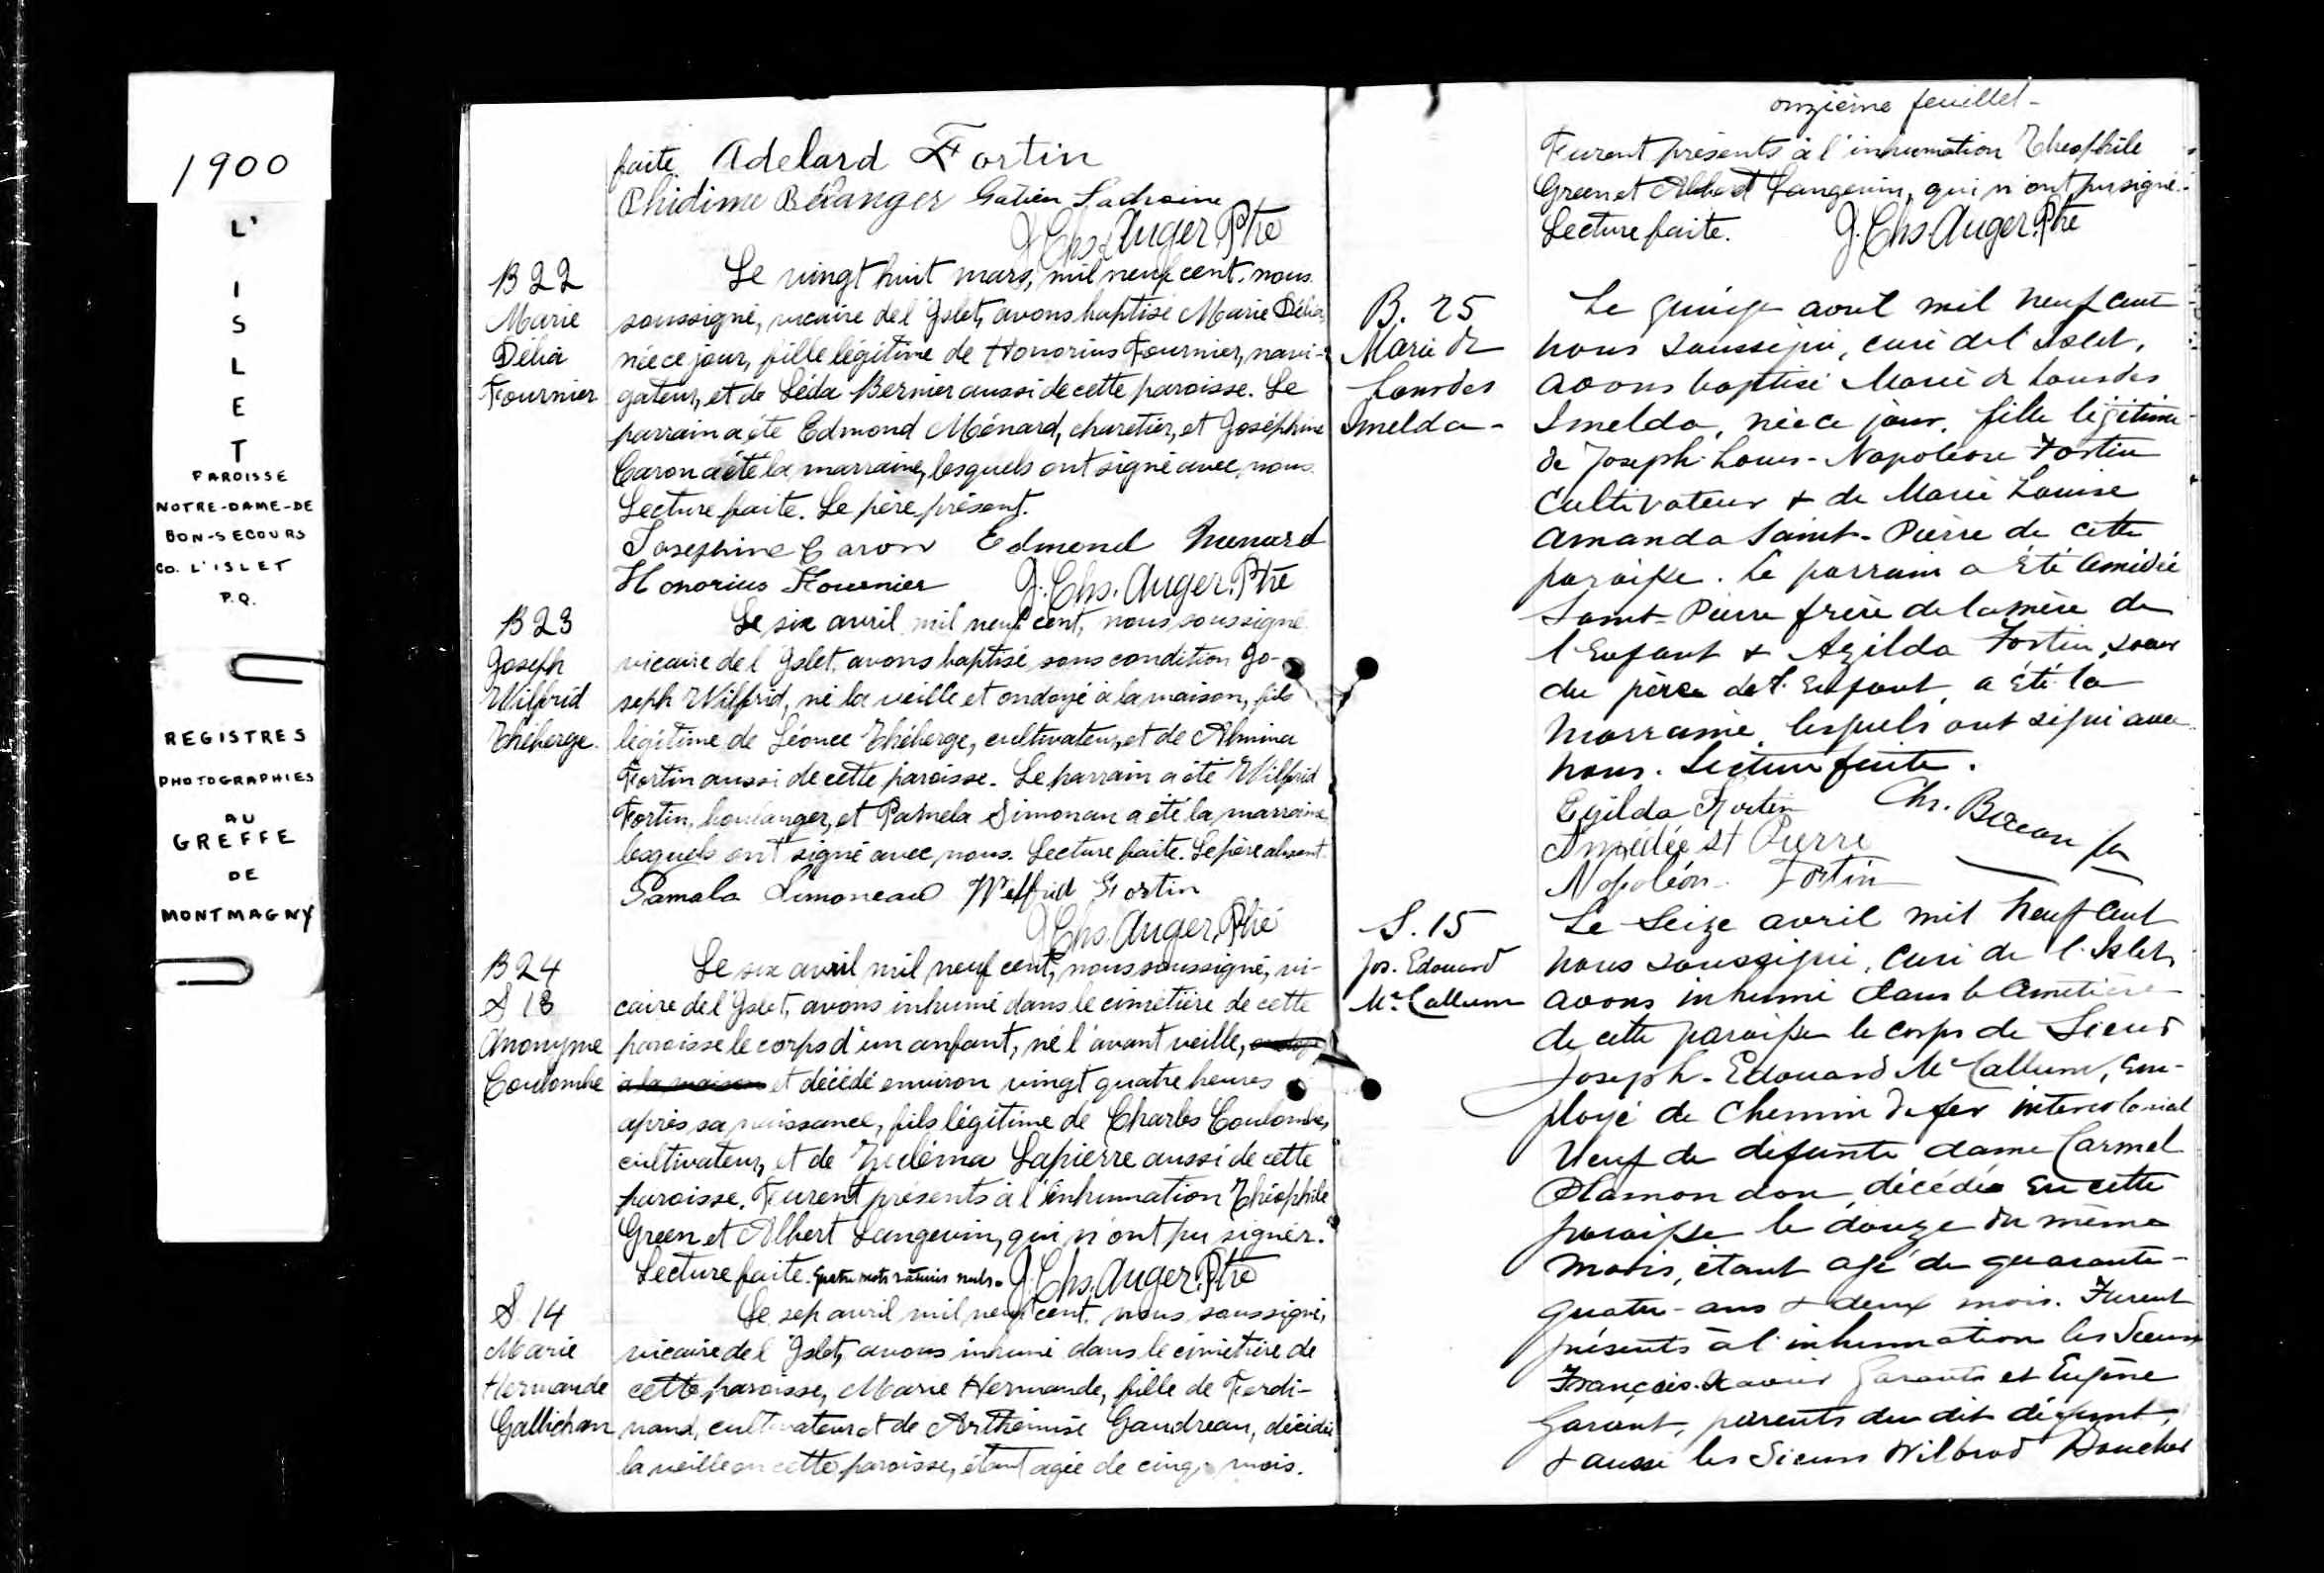 1900
L'
I
S
L
E
T
PAROISSE
NOTRE-DAME-DE
BON-SECOURS
CO. L'ISLET
P.Q.
REGISTRES
PHOTOGRAPHIES
AU
GREFFE
DE
MONTMAGNY
faite. Adelard Fortin
Phidime Bélanger Gatien
J. Chs. Auger. Ptre
B 22
Marie
Délia
Fournier
Le vingt huit mars, mil neuf cent, nous
soussigné, vicaire de l'Islet, avons baptisé Marie Délia,
née ce jour, fille légitime de Honorius Fournier, navi-
gateur, et de Léda Bernier aussi de cette paroisse. Le
parrain a été Edmond Ménard, charetier, et Joséphine
Caron a été la marraine, lesquels ont signé avec nous.
Lecture faite. Le père présent.
Josephine Caron Edmond Menard
Honorius Fournier J. Chs. Auger. Ptre
B 23
Joseph
Wilfrid
Théberge.
Le six avril mil neuf cent, nous soussigné
vicaire de l'Islet, avons baptisé sous condition Jo-
seph Wilfrid, né la veille et ondoyé à la maison, fils
légitime de Léonce Théberge, cultivateur, et de Almina
Fortin aussi de cette paroisse. Le parrain a été Wilfrid
Fortin, boulanger, et Pamela Simonau a été la marraine
lesquels ont signé avec nous. Lecture faite. Le père absent.
Pamala Simoneau Wilfrid Fortin
J. Chs. Auger. Ptre
B 24
S 13
Anonyme
Coulombe
Le six avril mil neuf cent, nous soussigné, vi-
caire de l'Islet, avons inhumé dans le cimetière de cette
paroisse le corps d'un anfant, né l'avant veille,
à la maison et décédé environ vingt quatre heures
après sa naissance, fils légitime de Charles Coulombe,
cultivateur, et de Lapierre aussi de cette
paroisse. Furent présents à l'inhumation Théophile
Green et Albert Langevin, qui n'ont pu signer.
Lecture faite. Quatre mots raturés nuls. J. Chs. Auger. Ptre
S. 14
Marie
Hermande
Gallichan
Le sept avril mil neuf cent, nous soussigné,
vicaire de l'Islet, avons inhumé dans le cimetière de
cette paroisse, Marie Hermande, fille de Ferdi-
nand, cultivateur et de Arthémise Gaudreau, décédée
la veille en cette paroisse, étant agée de cinq mois.
onzième feuillet-
Furent présents à l'inhumation Théophile
Green et Albert Langevin, qui n'ont pu signé.
Lecture faite. J. Chs. Auger. Ptre
B. 25
Marie de
Lourdes
Imelda-
Le quinze avril mil neuf cent
nous soussigné, curé de l'Islet,
avons baptisé Marie de Lourdes
Imelda, née ce jour, fille légitime
de Joseph-Louis-Napoléon Fortin
Cultivateur & de Marie Louise
Amanda Saint-Pierre de cette
paroisse. Le parrain a été Amédée
Saint-Pierre frère de la mère de
l'Enfant & Azilda Fortin, soeur
du père de l'Enfant, a été la
marraine, lesquels ont signé avec
nous. Lecture faite.
Fortin Chs.
Amédée St Pierre
Napoléon Fortin
S. 15
Jos. Edouard
McCallum
Le Seize avril mil neuf cent
nous soussigné, curé de l'Islet,
avons inhumé dans le cimetière
de cette paroisse le corps de Sieur
Joseph-Edouard McCallum, em-
ployé de Chemin de fer intercolonial
Veuf de défunte dame Carmel
Plamondon, décédé en cette
paroisse le douze du même
mois, étant agé de quarante-
quatre-ans & deux mois. Furent
présents à l'inhumation les Sieurs
François-Xavier Garant et Eugène
Garant, parents du dit défunt,
& aussi les Sieurs Wilbrod Boucher